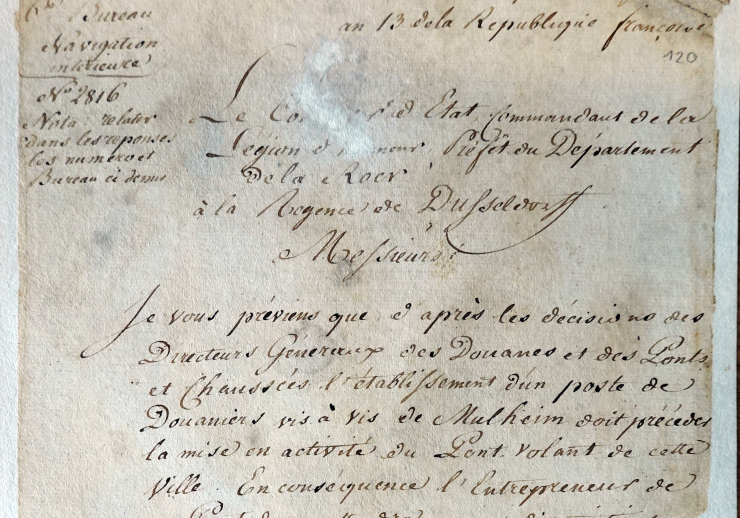 Bureau
Navigation
intérieure
No 2816
Nota: relater
dans les reponses
les numero et
Bureau ci dessus
an 13 de la Republique françoise
120
Le Con d'Etat, Commandant de la
Légion d'honneur, Préfet du Département
de la Roer
à la Regence de Dusseldorff
Messieurs
Je vous préviens que d'après les décisions des
Directeurs Généreaux des Douanes et des Ponts
et Chaussées l'établissement d'un poste de
Douaniers vis à vis de Mulheim doit précéder
la mise en activité du Pont volant de cette
Ville. En conséquence l'Entrepreneur de